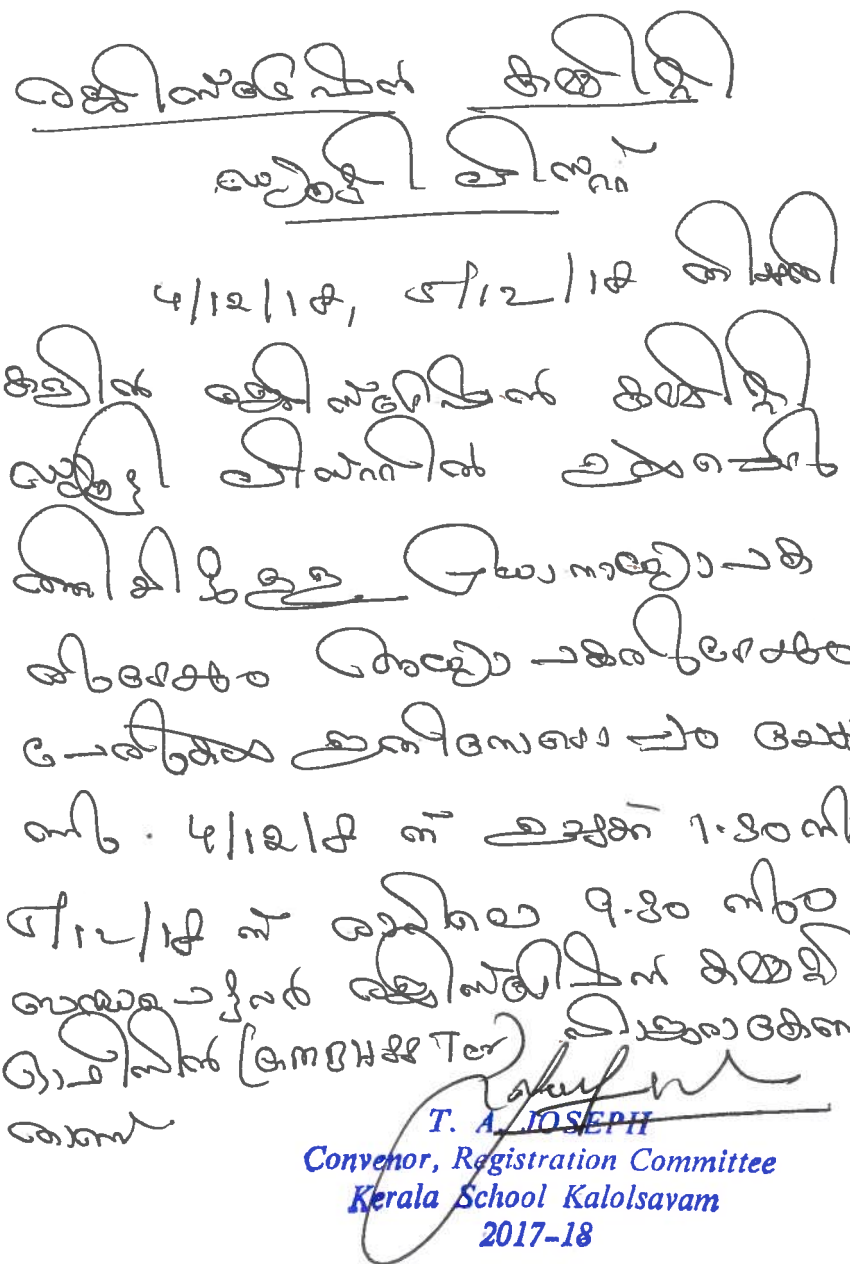 രജിസ്ട്രേഷൻ കമ്മിറ്റി
ഡ്യൂട്ടി ലിസ്റ്റ്
4/12/18, 5/12/18 തിയ്യതി
കളിൽ രജിസ്ട്രേഷൻ കമ്മിറ്റി
ഡ്യൂട്ടി ലിസ്റ്റിൽ ഉൾപ്പെടു
ത്തിയിട്ടുള്ള പ്രധാനാദ്ധ്യാപക
രുടേയും അദ്ധ്യാപകരുടേയും
പേരുകൾ ഇതിനോടൊപ്പം ചേർക്കു
ന്നു. 4/12/18 ന് ഉച്ചക്ക് 1.30 നും
5/12/18 ന് രാവിലെ 9.30 നും
ബന്ധപ്പെട്ടവർ രജിസ്ട്രേഷൻ കമ്മിറ്റി
ഓഫീസിൽ ഹാജരാകേണ്ട
താണ്
T. A. JOSEPH
Convenor, Registration Committee
Kerala School Kalolsavam
2017-18